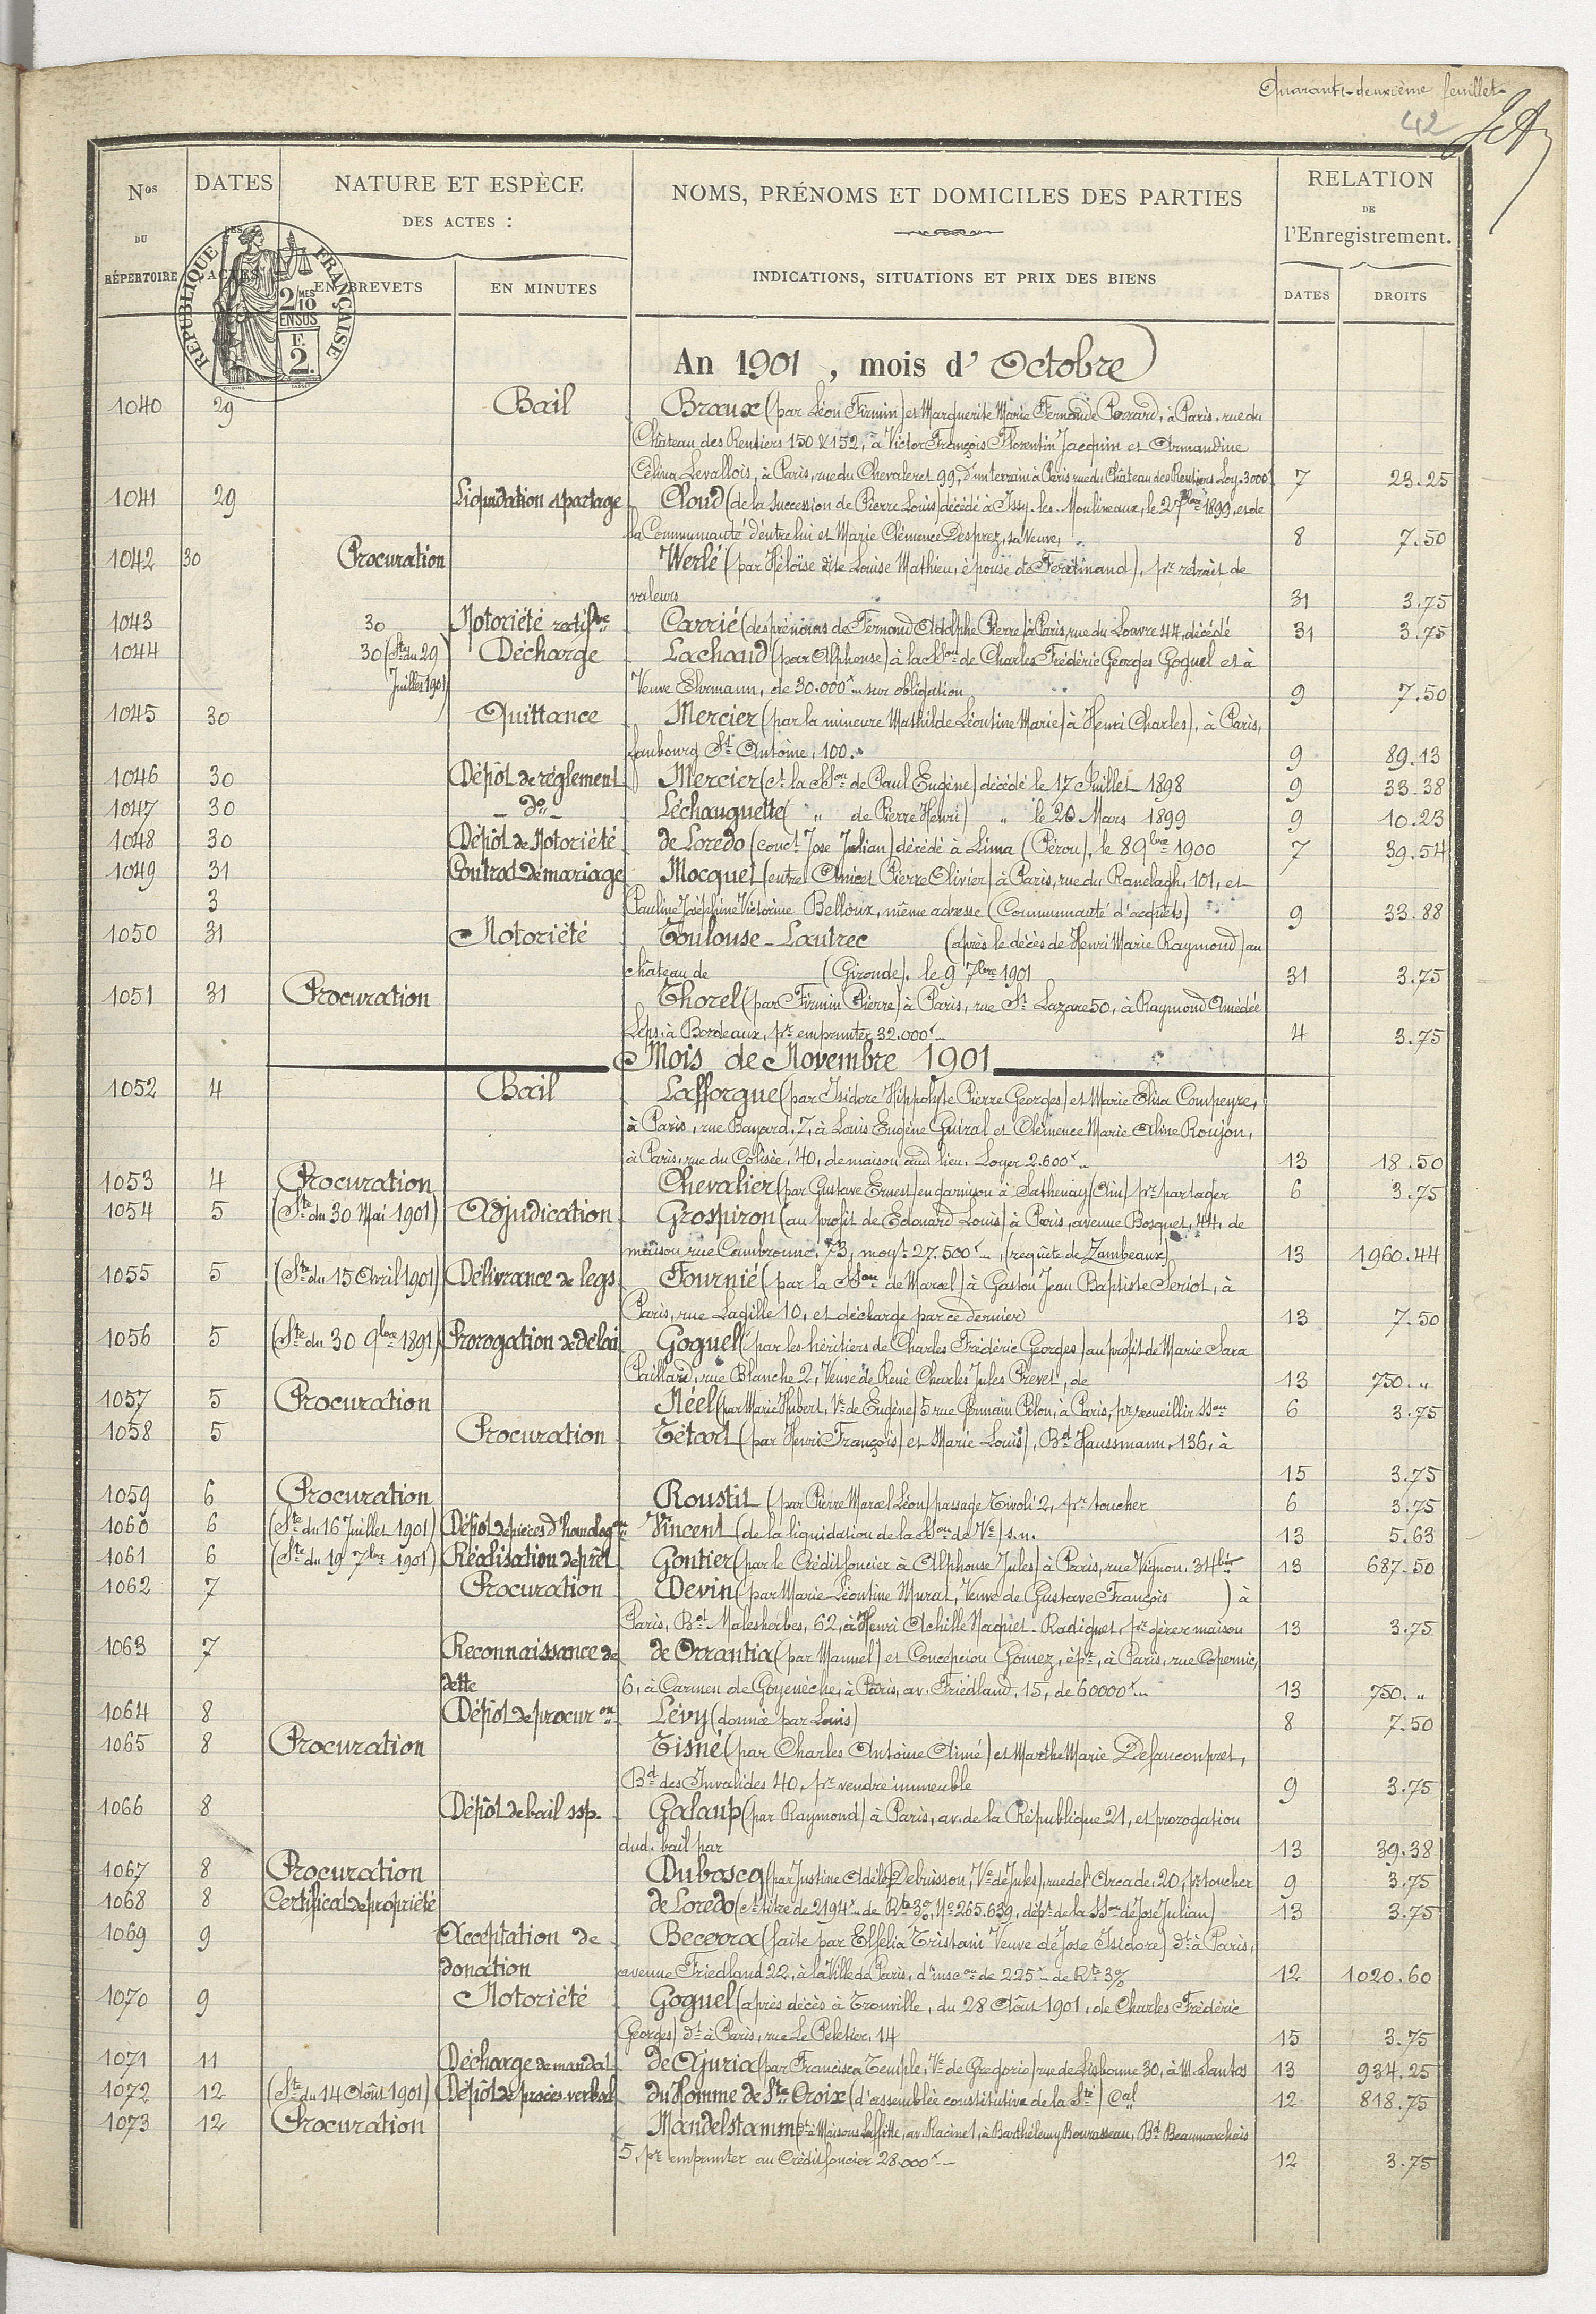 Quarante-deuxième feuillet
42
Nos DU RÉPERTOIRE
DATES DES ACTES
NATURE ET ESPÈCE
DES ACTES :
EN BREVETS
EN MINUTES
NOMS, PRÉNOMS ET DOMICILES DES PARTIES
INDICATIONS, SITUATIONS ET PRIX DES BIENS
RELATION
DE
l'Enregistrement.
DATES
DROITS
RÉPUBLIQUE FRANÇAISE
2/10 MES
EN SUS
F.
2.
An 1901, mois d'Octobre
1040 29 Bail Braux (par Léon Firmin) et Marguerite Marie Fernande Perrard, à Paris, rue du
Château des Rentiers 150 & 152, à Victor François Florentin Jacquin et Armandine
Célina Levallois, à Paris, rue du Chevaleret 99, d'un terrain à Paris rue du Château des Rentiers Loy. 3000f 7 23.25
1041 29 Liquidation et partage Cloud (de la succession de Pierre Louis) décédé à Issy-les-Moulineaux, le 27 1899, et de
la Communauté d'entre lui et Marie Clémence Desprez, sa Veuve, 8 7.50
1042 30 Procuration Werlé (par Héloïse dite Louise Mathieu, épouse de Ferdinand), pr retrait de
valeurs 31 3.75
1043 30 Notoriété rectifve Carrié (des prénoms de Fernand Adolphe Pierre) à Paris, rue du Louvre 44, décédé 31 3.75
1044 30 (Ste du 29 Décharge Lachaud (par Alphonse) à la Sson de Charles Frédéric Georges Goguel et à
Juillet 1901) Veuve Ehrmann, de 30.000f sur obligation 9 7.50
1045 30 Quittance Mercier (par la mineure Mathilde Léontine Marie) à Henri Charles), à Paris,
faubourg St Antoine, 100. 9 89.13
1046 30 Dépôt de règlement Mercier (ct la Sson de Paul Eugène) décédé le 17 Juillet 1898 9 33.38
1047 30 - do - Léchauguette ( " de Pierre Henri) " le 20 Mars 1899 9 10.23
1048 30 Dépôt de Notoriété de Loredo (conct Jose Julian) décédé à Lima (Pérou), le 8 9bre 1900 7 39.54
1049 31 Contrat de mariage Mocquet (entre Amicet Pierre Olivier) à Paris, rue du Ranelagh, 101, et
3 Pauline Joséphine Victorine Belloux, même adresse (Communauté d'acquêts) 9 33.88
1050 31 Notoriété Toulouse-Lautrec (après le décès de Henri Marie Raymond) au
château de (Gironde), le 9 7bre 1901 31 3.75
1051 31 Procuration Thorel (par Firmin Pierre) à Paris, rue St Lazare 50, à Raymond Amédée
Leps, à Bordeaux, pr emprunter 32.000f 4 3.75
Mois de Novembre 1901
1052 4 Bail Lafforgue (par Isidore Hippolyte Pierre Georges) et Marie Elisa Compeyre,
à Paris, rue Bayard, 7, à Louis Eugène Guiral et Clémence Marie Aline Roujon,
à Paris, rue du Colisée, 40, de maison aud. lieu. Loyer 2.600f 13 18.50
1053 4 Procuration Chevalier (par Gustave Ernest) en garnison à Sathonay (Ain) pr partager 6 3.75
1054 5 (Ste du 30 Mai 1901) Adjudication Grospiron (au profit de Edouard Louis) à Paris, avenue Bosquet, 44, de
maison rue Cambronne, 73, moyt 27.500f, (requête de Zambeaux) 13 1960.44
1055 5 (Ste du 15 Avril 1901) Délivrance de legs Fournié (par la Sson de Marcel) à Gaston Jean Baptiste Seriot, à
Paris, rue Lagille 10, et décharge par ce dernier 13 7.50
1056 5 (Ste du 30 9bre 1891) Prorogation de délai Goguel (par les héritiers de Charles Frédéric Georges) au profit de Marie Sara
Paillard, rue Blanche 2, Veuve de René Charles Jules Prevet, de 13 750."
1057 5 Procuration Néel (par Marie Hubert, Ve de Eugène) 5 rue Germain Pilon, à Paris, pr recueillir Sson 6 3.75
1058 5 Procuration Tétart (par Henri François) et Marie Louis), Bd Haussmann, 136, à
15 3.75
1059 6 Procuration Roustit (par Pierre Marcel Léon) passage Tivoli 2, pr toucher 6 3.75
1060 6 (Ste du 16 Juillet 1901) Dépôt de pièces d'homologon Vincent (de la liquidation de la Sson de Ve) s.n. 13 5.63
1061 6 (Ste du 19 7bre 1901) Réalisation de prêt Gontier (par le Crédit foncier à Alphonse Jules) à Paris, rue Vignon, 34 bis 13 687.50
1062 7 Procuration Devin (par Marie Léontine Murat, Veuve de Gustave François ) à
Paris, Bd Malesherbes, 62, à Henri Achille Naquet-Radiguet, pr gérer maison 13 3.75
1063 7 Reconnaissance de de Orrantia (par Manuel) et Concepcion Gomez, épse, à Paris, rue Copernic,
dette 6, à Carmen de Goyenèche, à Paris, av. Friedland, 15, de 60000f 13 750."
1064 8 Dépôt de procuron Lévy (donnée par Louis) 8 7.50
1065 8 Procuration Tisné (par Charles Antoine Aimé) et Marthe Marie Defauconpret,
Bd des Invalides 40, pr vendre immeuble 9 3.75
1066 8 Dépôt de bail ssp. Galaup (par Raymond) à Paris, av. de la République 21, et prorogation
dud. bail par 13 39.38
1067 8 Procuration Duboscq (par Justine Adèle Debuisson, Ve de Jules), rue de l'Arcade, 20, pr toucher 9 3.75
1068 8 Certificat de propriété de Loredo (ct titre de 2194f de Rte 3%, No 265.639, dépt de la Sson de José Julian) 13 3.75
1069 9 Acceptation de Becerra (faite par Elfelia Tristani Veuve de Jose Isidore) dt à Paris,
donation avenue Friedland 22, à la Ville de Paris, d'inscon de 225f de Rte 3% 12 1020.60
1070 9 Notoriété Goguel (après décès à Trouville, du 28 Août 1901, de Charles Frédéric
Georges) dt à Paris, rue Le Peletier, 14 15 3.75
1071 11 Décharge de mandat de Ajuria (par Francisca Temple, Ve de Gregorio) rue de Lisbonne 30, à M. Santos 13 934.25
1072 12 (Ste du 14 Août 1901) Dépôt de procès-verbal du Homme de Ste Croix (d'assemblée constitutive de la Sté) Cal 12 818.75
1073 12 Procuration Mandelstamm dt à Maisons Laffitte, av. Racine 1, à Barthélemy Bourasseau, Bd Beaumarchais
5, pr emprunter au Crédit foncier 28.000f 12 3.75